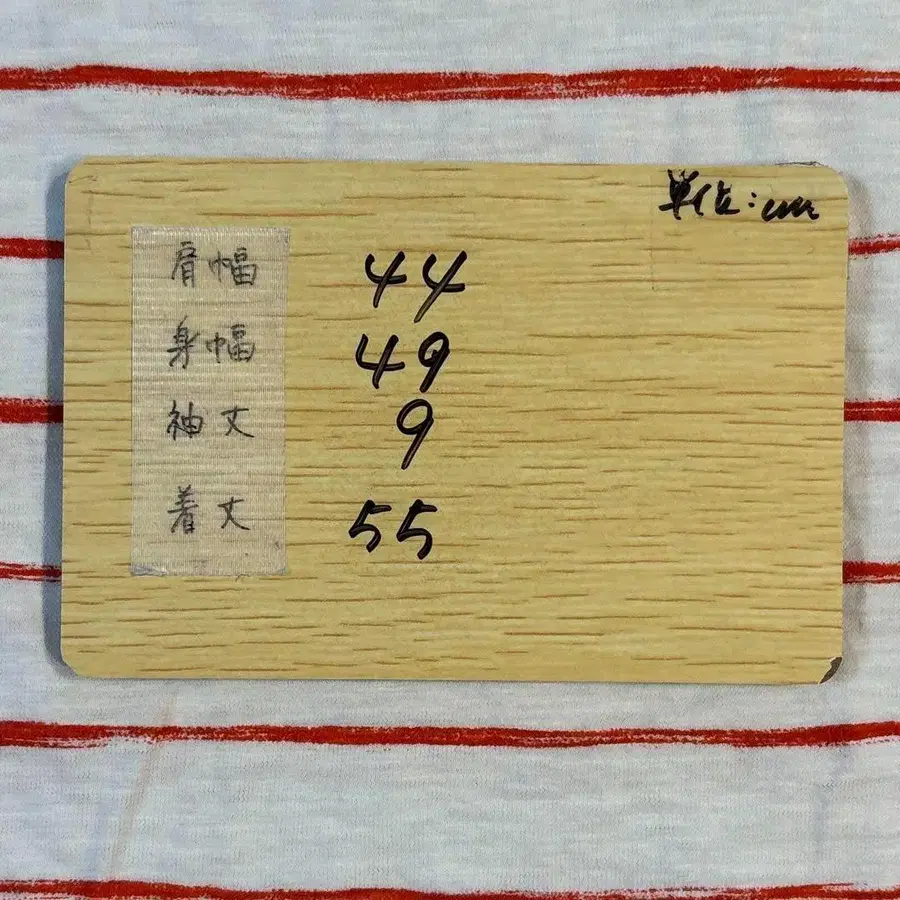 単位:cm
肩幅 44
身幅 49
袖丈 9
着丈 55